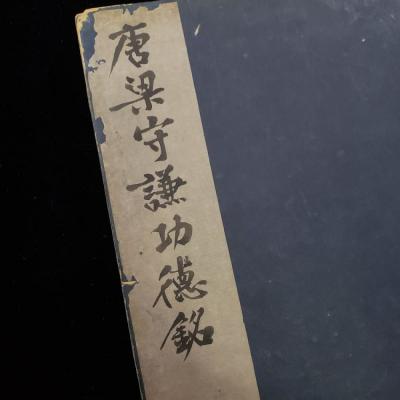 唐梁守謙功德銘